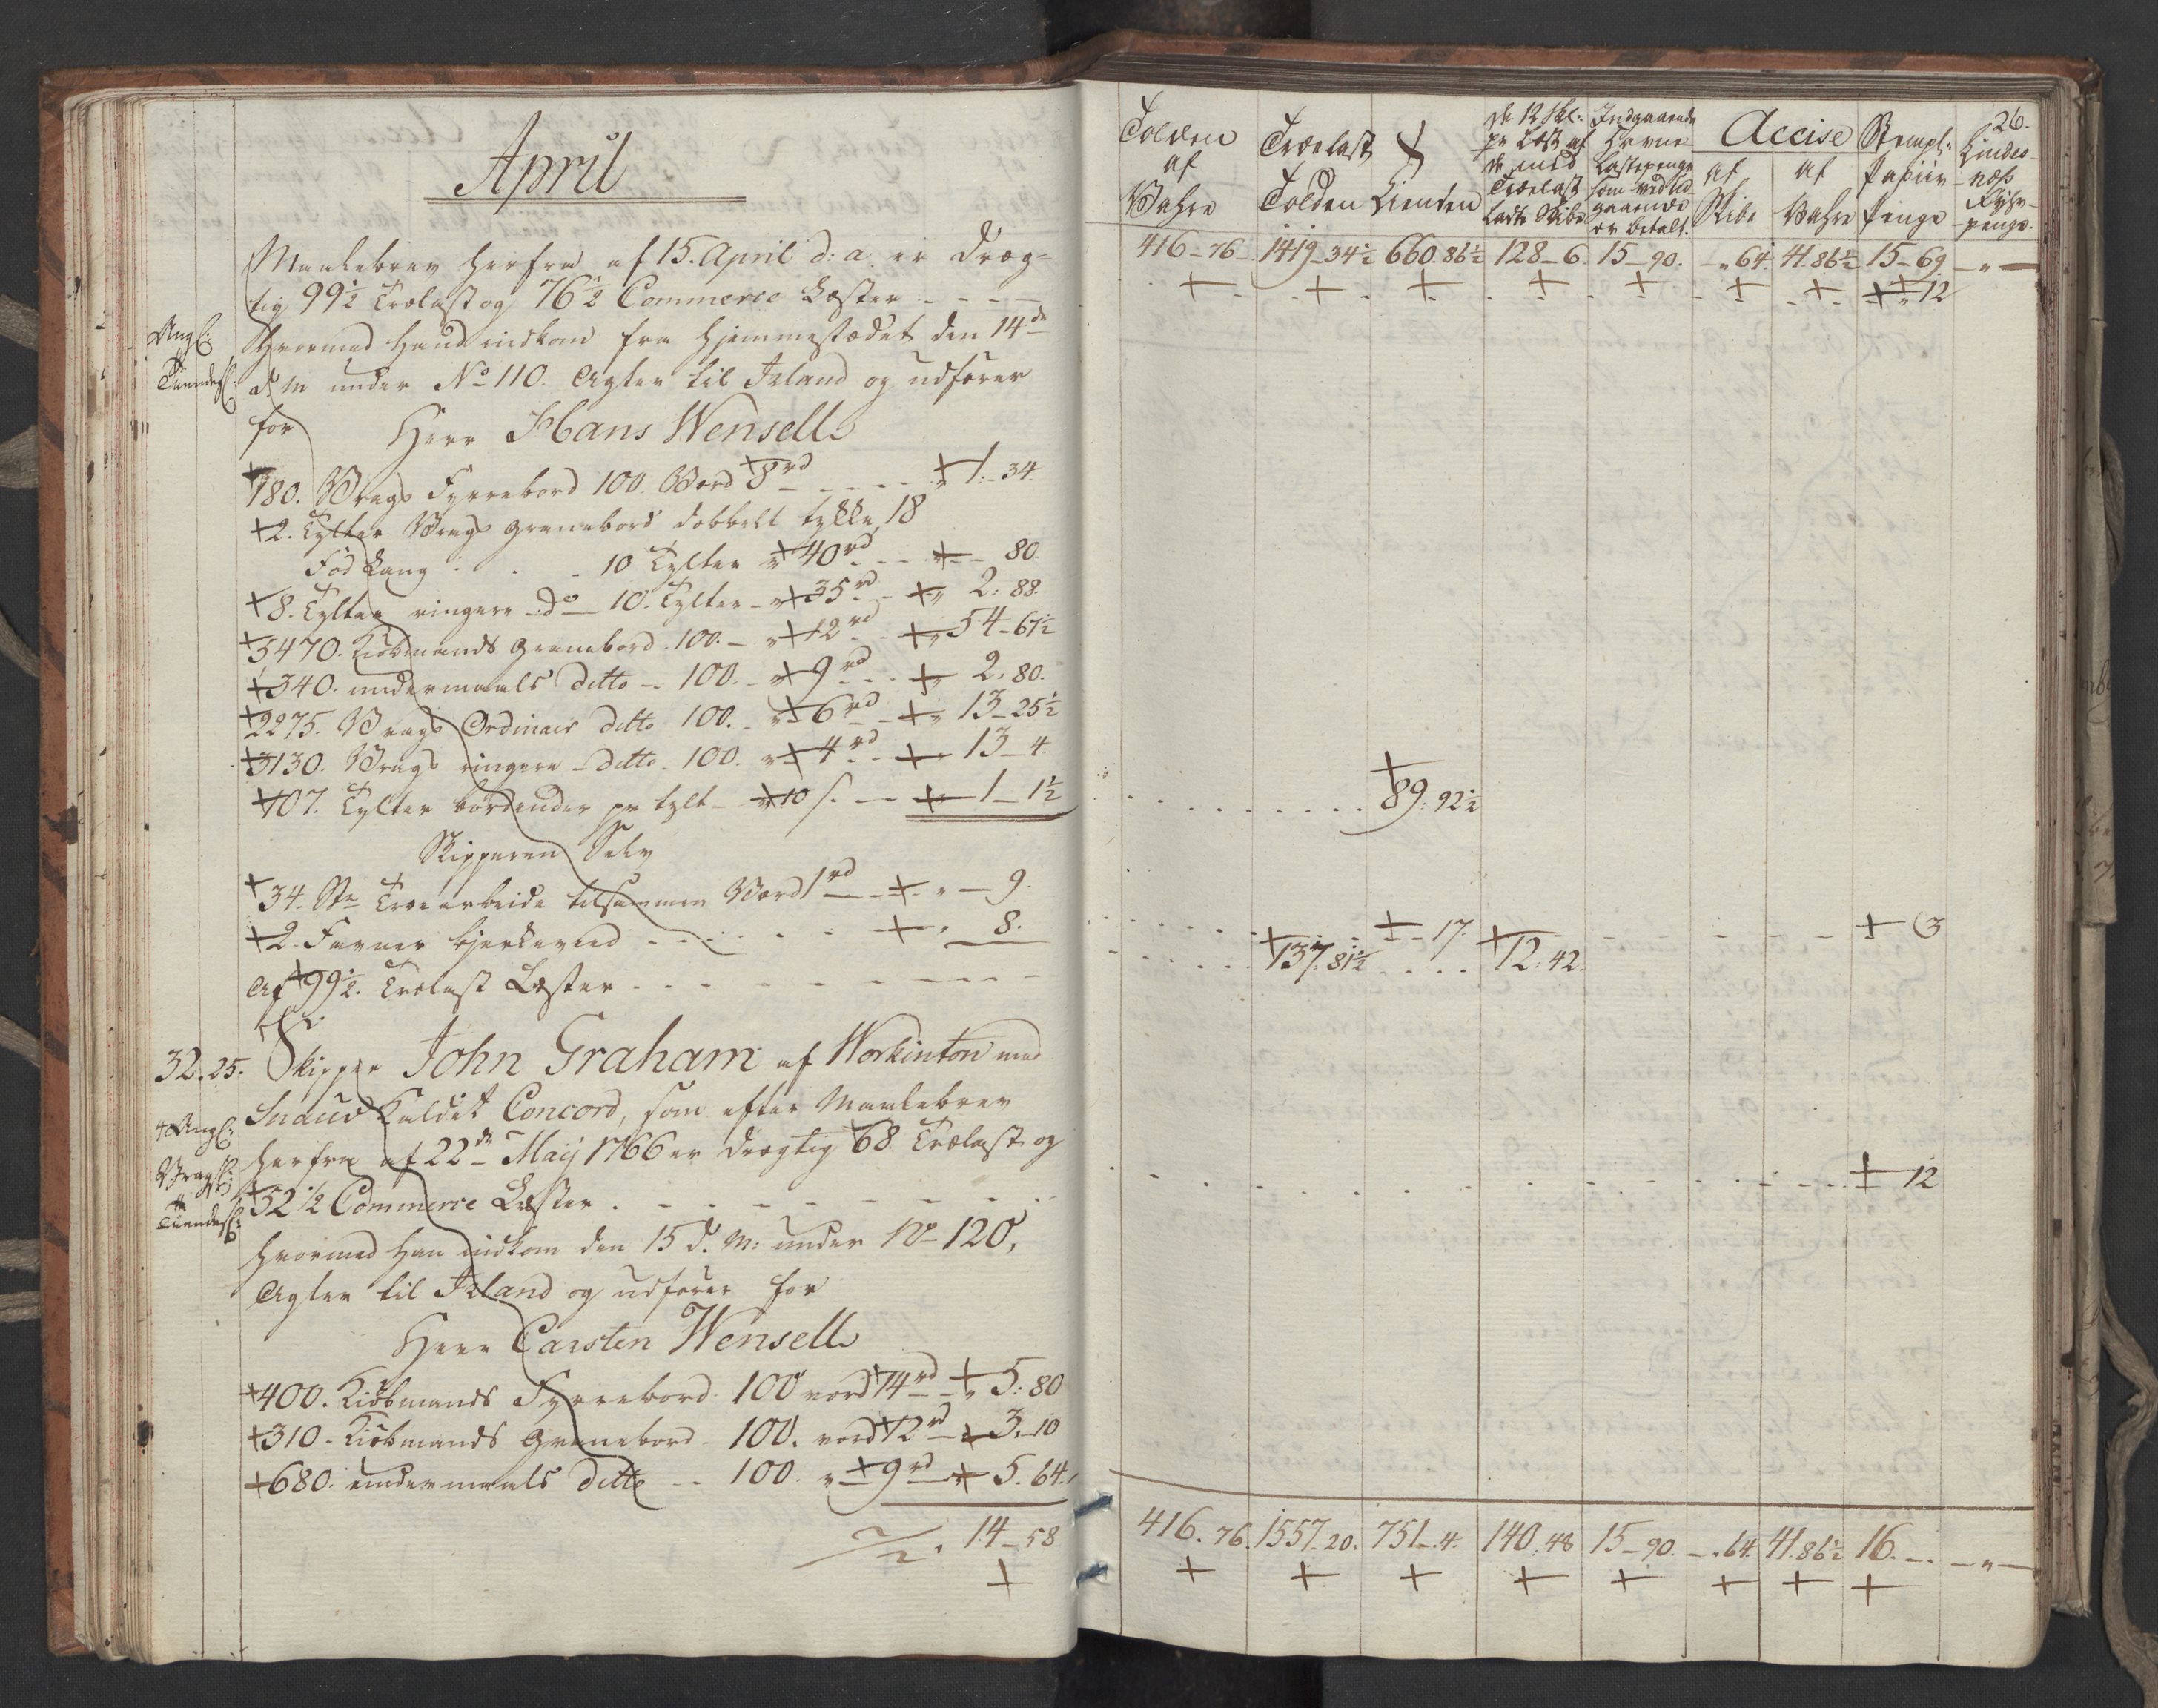 April
Maalebrev herfra af 15. April d: a. er dræg=
tig 99½ Trælast og 76½ Commerce Læster
Angl:
hvormed hand indkom fra hjemmestædet den 14de
Tiendes:
d. M under No 110. Agter til Irland og udfører
for Herr Hans Wensell
180. Vrags Fyrrebord 100 Værd 8rd " 1:-34
2. Tylter Vrags Granebord dobbelt tykke, 18
Fod Lang . . . 10 Tylter " 40rd " - 80
8. Tylter ringere do 10. Tylter - " 35rd " 2:88.
5470. Kiøbmands Granebord 100. - " 12rd " 54-67½
340. undermaals ditto - 100. - " 9rd " 2:80.
2275. Vrags Ordinair ditto 100. - " 6rd " 13-25½
3130. Vrags ringere ditto 100. " 4rd " 13-4.
107. Tylter bordender pr tylt - " 10 s. " 1-1½
Skipperen Selv
34. Str Træearbeide tilsammen Værd 1rd " - 9.
2. Favner bjerkeved " 8.
Af 99½. Trælast Læster
32.25. Skipper John Graham af Workinton med
Snaud Kaldet Concord, som efter Maalebrev
Angl:
herfra af 22de Maij 1766 er drægtig 68 Trælast og
Vrags:
52½ Commerce Læster
Tiendes:
hvormed han indkom den 15 d. M: under No 120,
Agter til Irland og udfører for
Herr Carsten Wensell
400. Kiøbmands Fyrrebord 100 værd 14rd " 5:80
310. Kiøbmands Granebord 100. værd 12rd " 3.10
680. undermaals ditto - 100. " 9rd " 5.64.
14-58
26.
Tolden af Vahre
Trælast Tolden
Tienden
De 12 Skl: pr Læst af de med Trælast Ladte Skibe
Indgaaende Lastepenge som ved Udgaaende er betalt.
Accise
af Skibe
af Vahre
Stempl: Papiir Penge
Lindesnæss Fyhrpenge.
416-76 1419-34½ 660.86½ 128-6. 15-90. -"64. 41.86½ 15-69. -"-
" 12
89:92½
-17. 3
137:81½ 12:42.
12
416.76. 1557-20. 751-4. 140:48 15-90. -"64. 41.86½ 16.-. -"-